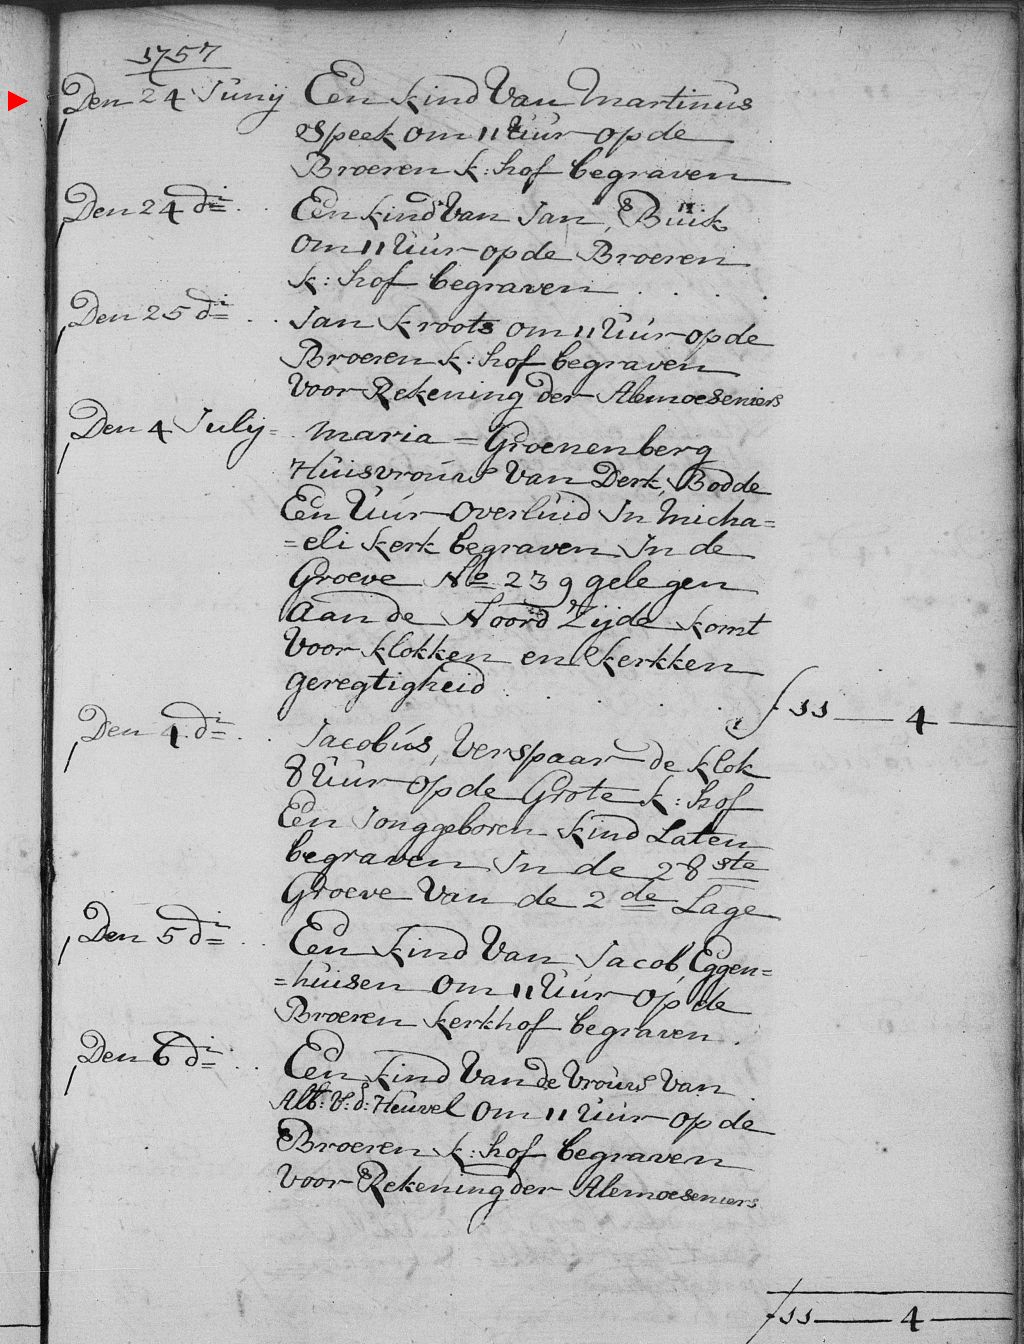 1757
Den 24 Junij Een kind Van Martinus
Speek om 11 Uur op de
Broeren k: hof begraven
Den 24 di Een kind Van Jan Buik
om 11 Uur op de Broeren
k: hof begraven
Den 25 di Jan kroots om 11 Uur op de
Broeren k: hof begraven
Voor Rekening der Alemoeseniers
Den 4 Julij Maria = Groenenberg
Huisvrouw Van Derk Bodde
Een Uur Overluid In Micha=
=eli kerk begraven In de
Groeve No 239 gelegen
Aan de Noord Zijde komt
Voor klokken en kerkken
geregtigheid f 11 — 4 —
Den 4 di Jacobus Verspaar de klok
8 Uur op de Grote k: hof
Een Jonggeboren kind Laten
begraven In de 28 ste
Groeve Van de 2 de Lage
Den 5 di Een kind Van Jacob Eggen=
=huisen om 11 Uur op de
Broeren kerkhof begraven
Den 6 di Een kind Van de Vrouw Van
Alb: V: d: Heuvel om 11 Uur op de
Broeren k: hof begraven
Voor Rekening der Alemoeseniers
f 11 — 4 —